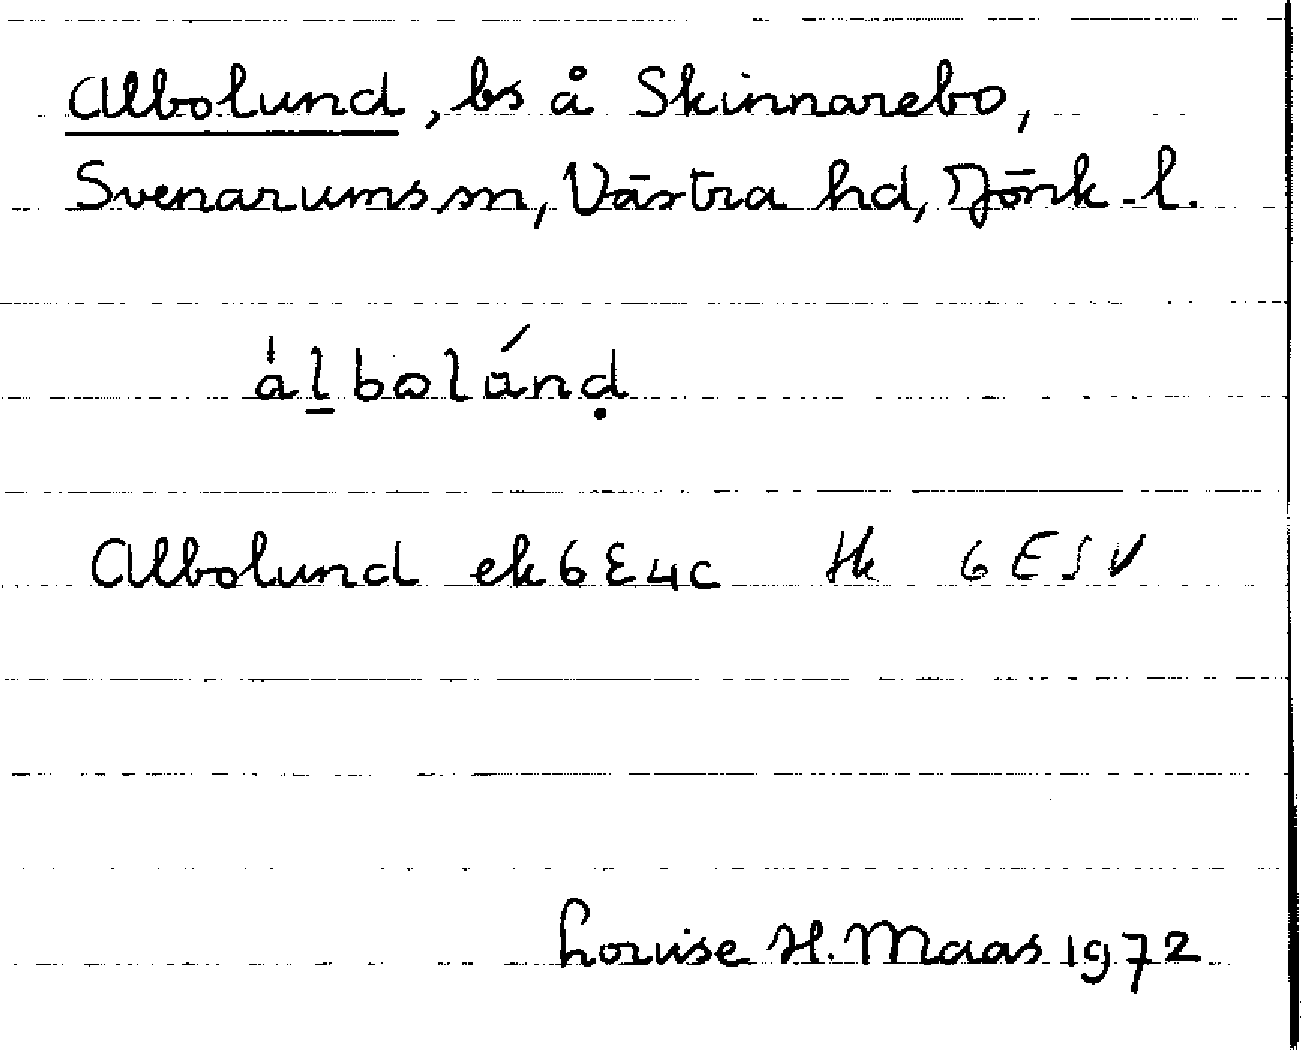 Albolund, bs å Skinnarebo,
Svenarums sn, Västra hd, Jönk. l.
álbolänḍ
Albolund ek 6E4c Hk 6E SV
Louise H. Maas 1972